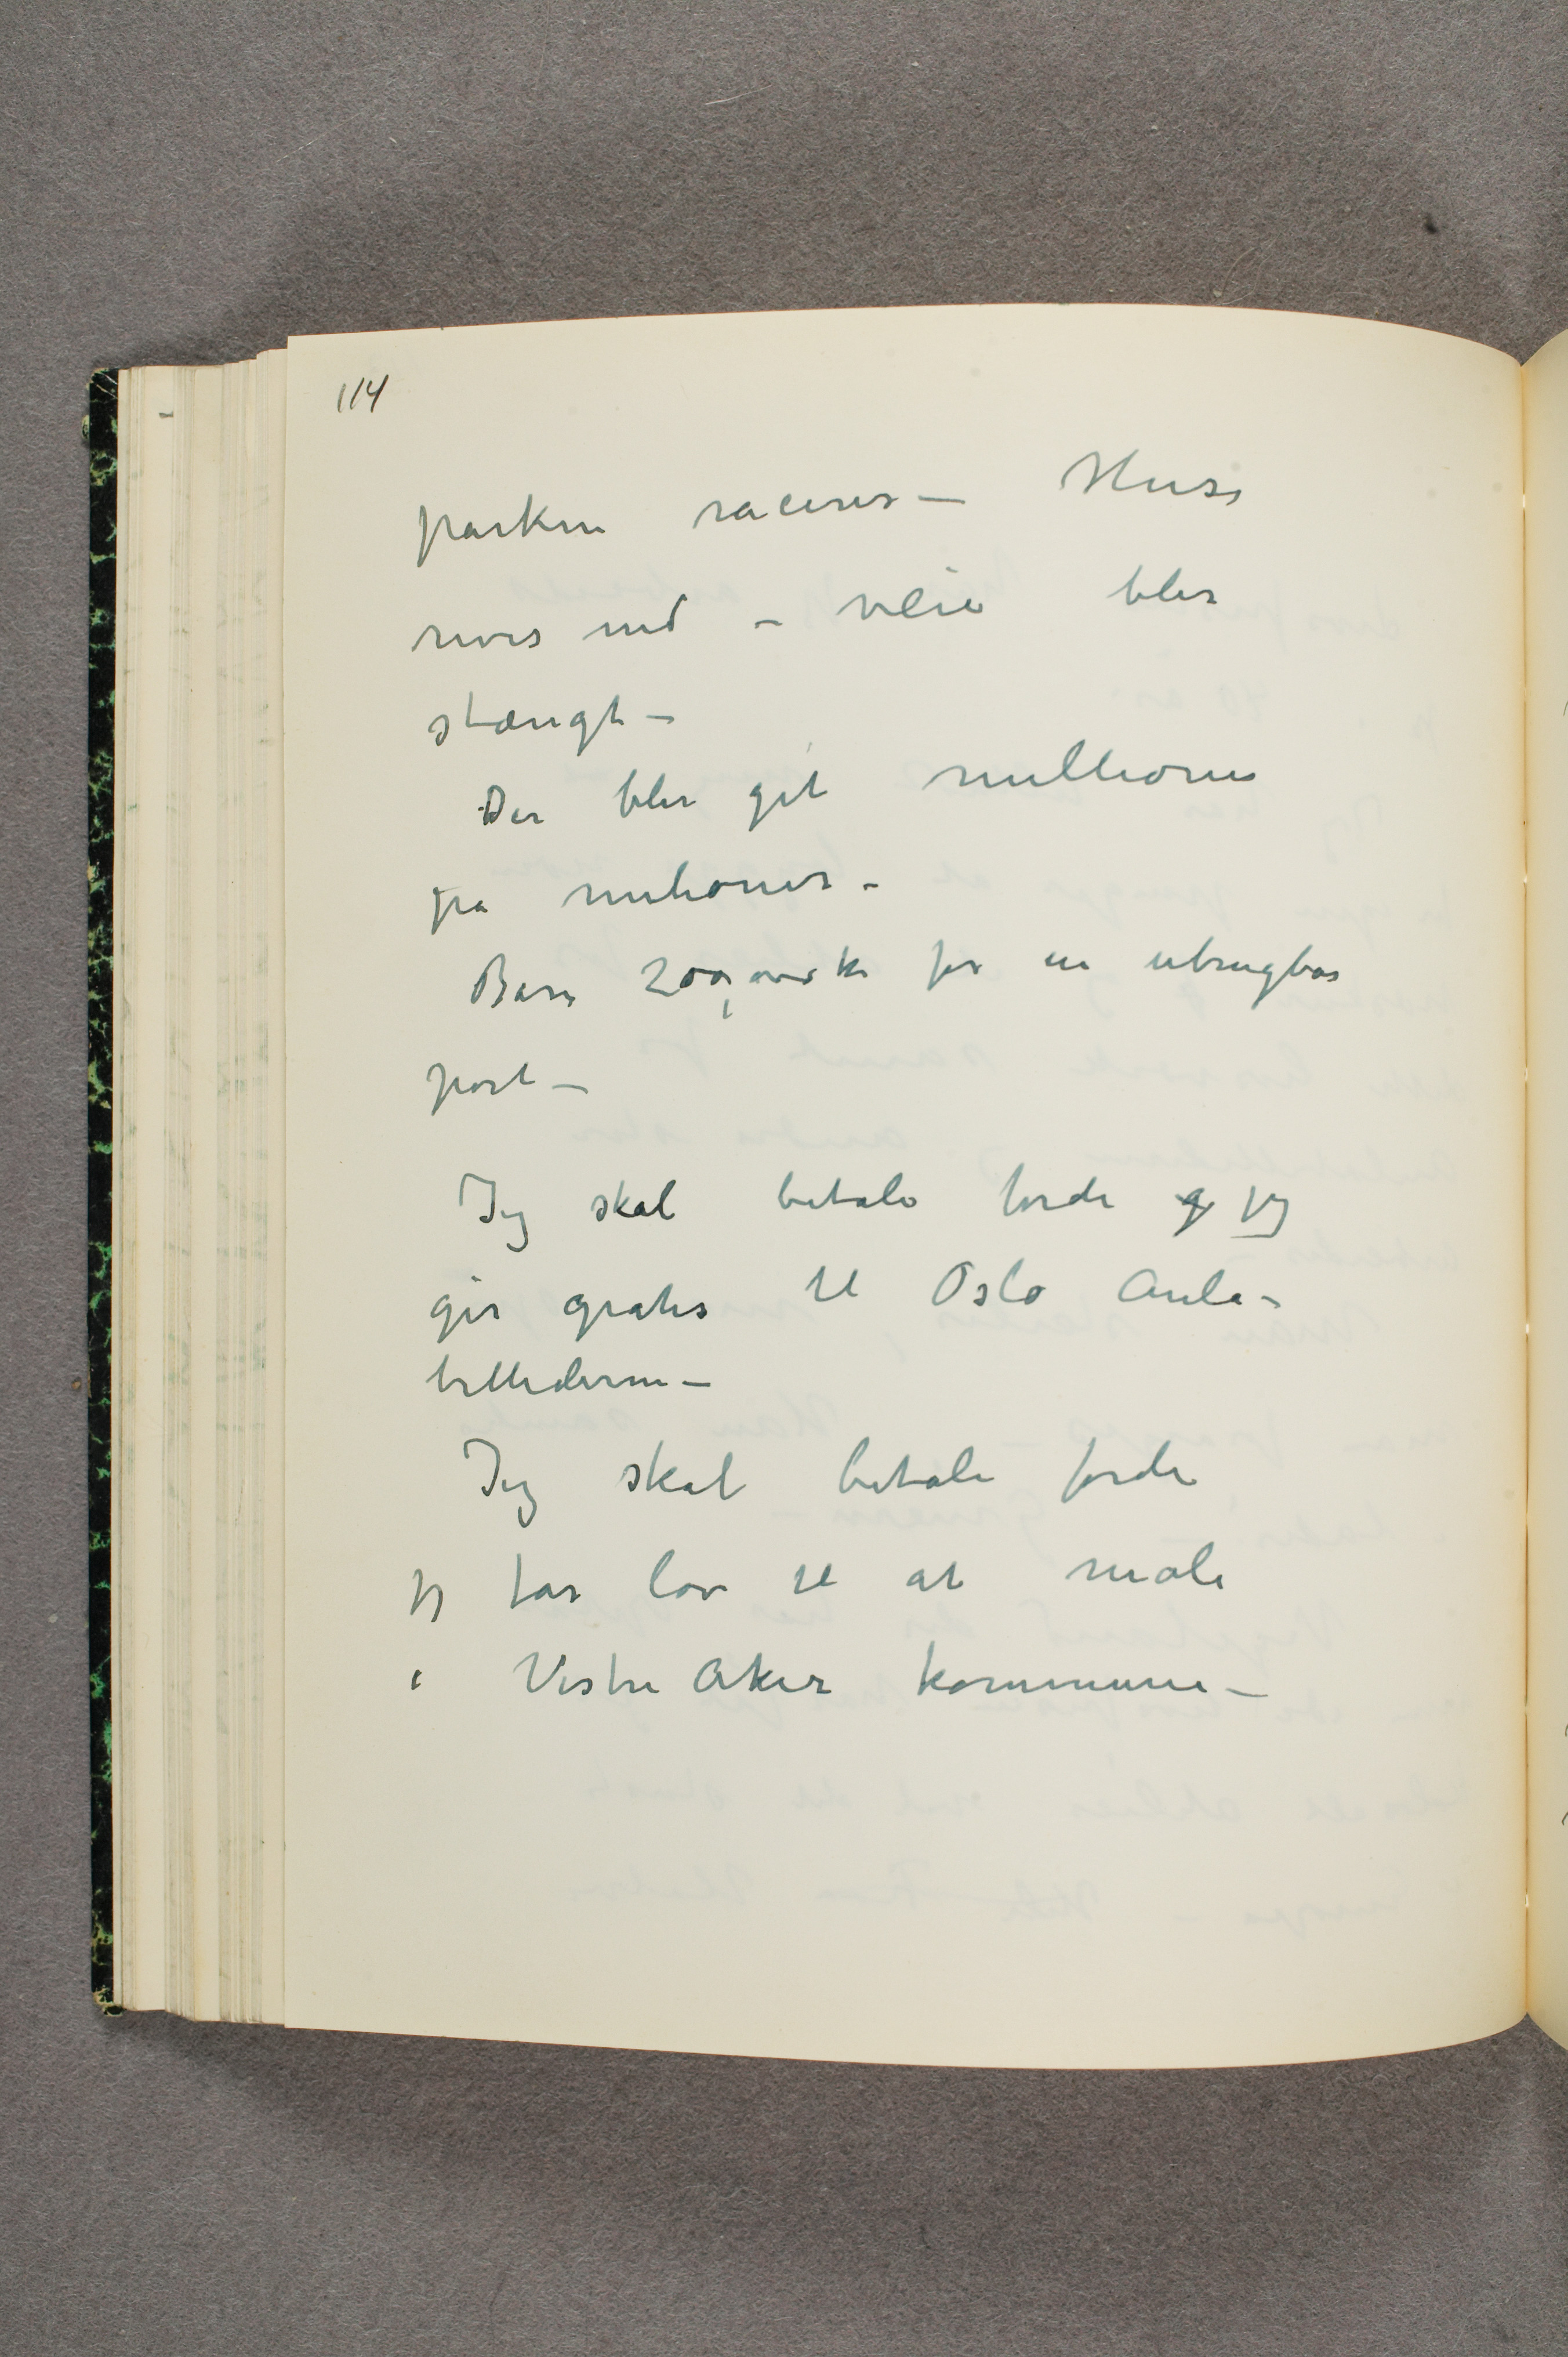 114
parken raceres – Huse
rives ned – veie blir
stængt –
Der blir git millioner
på milioner –
Bare 200,000 kr for en ubrugbar
port –
Jeg skal betale fordi g jeg
gir gratis til Oslo Aula-
billederne –
Jeg skal betale fordi
jeg får lov til at male
i Vestre Aker kommune –